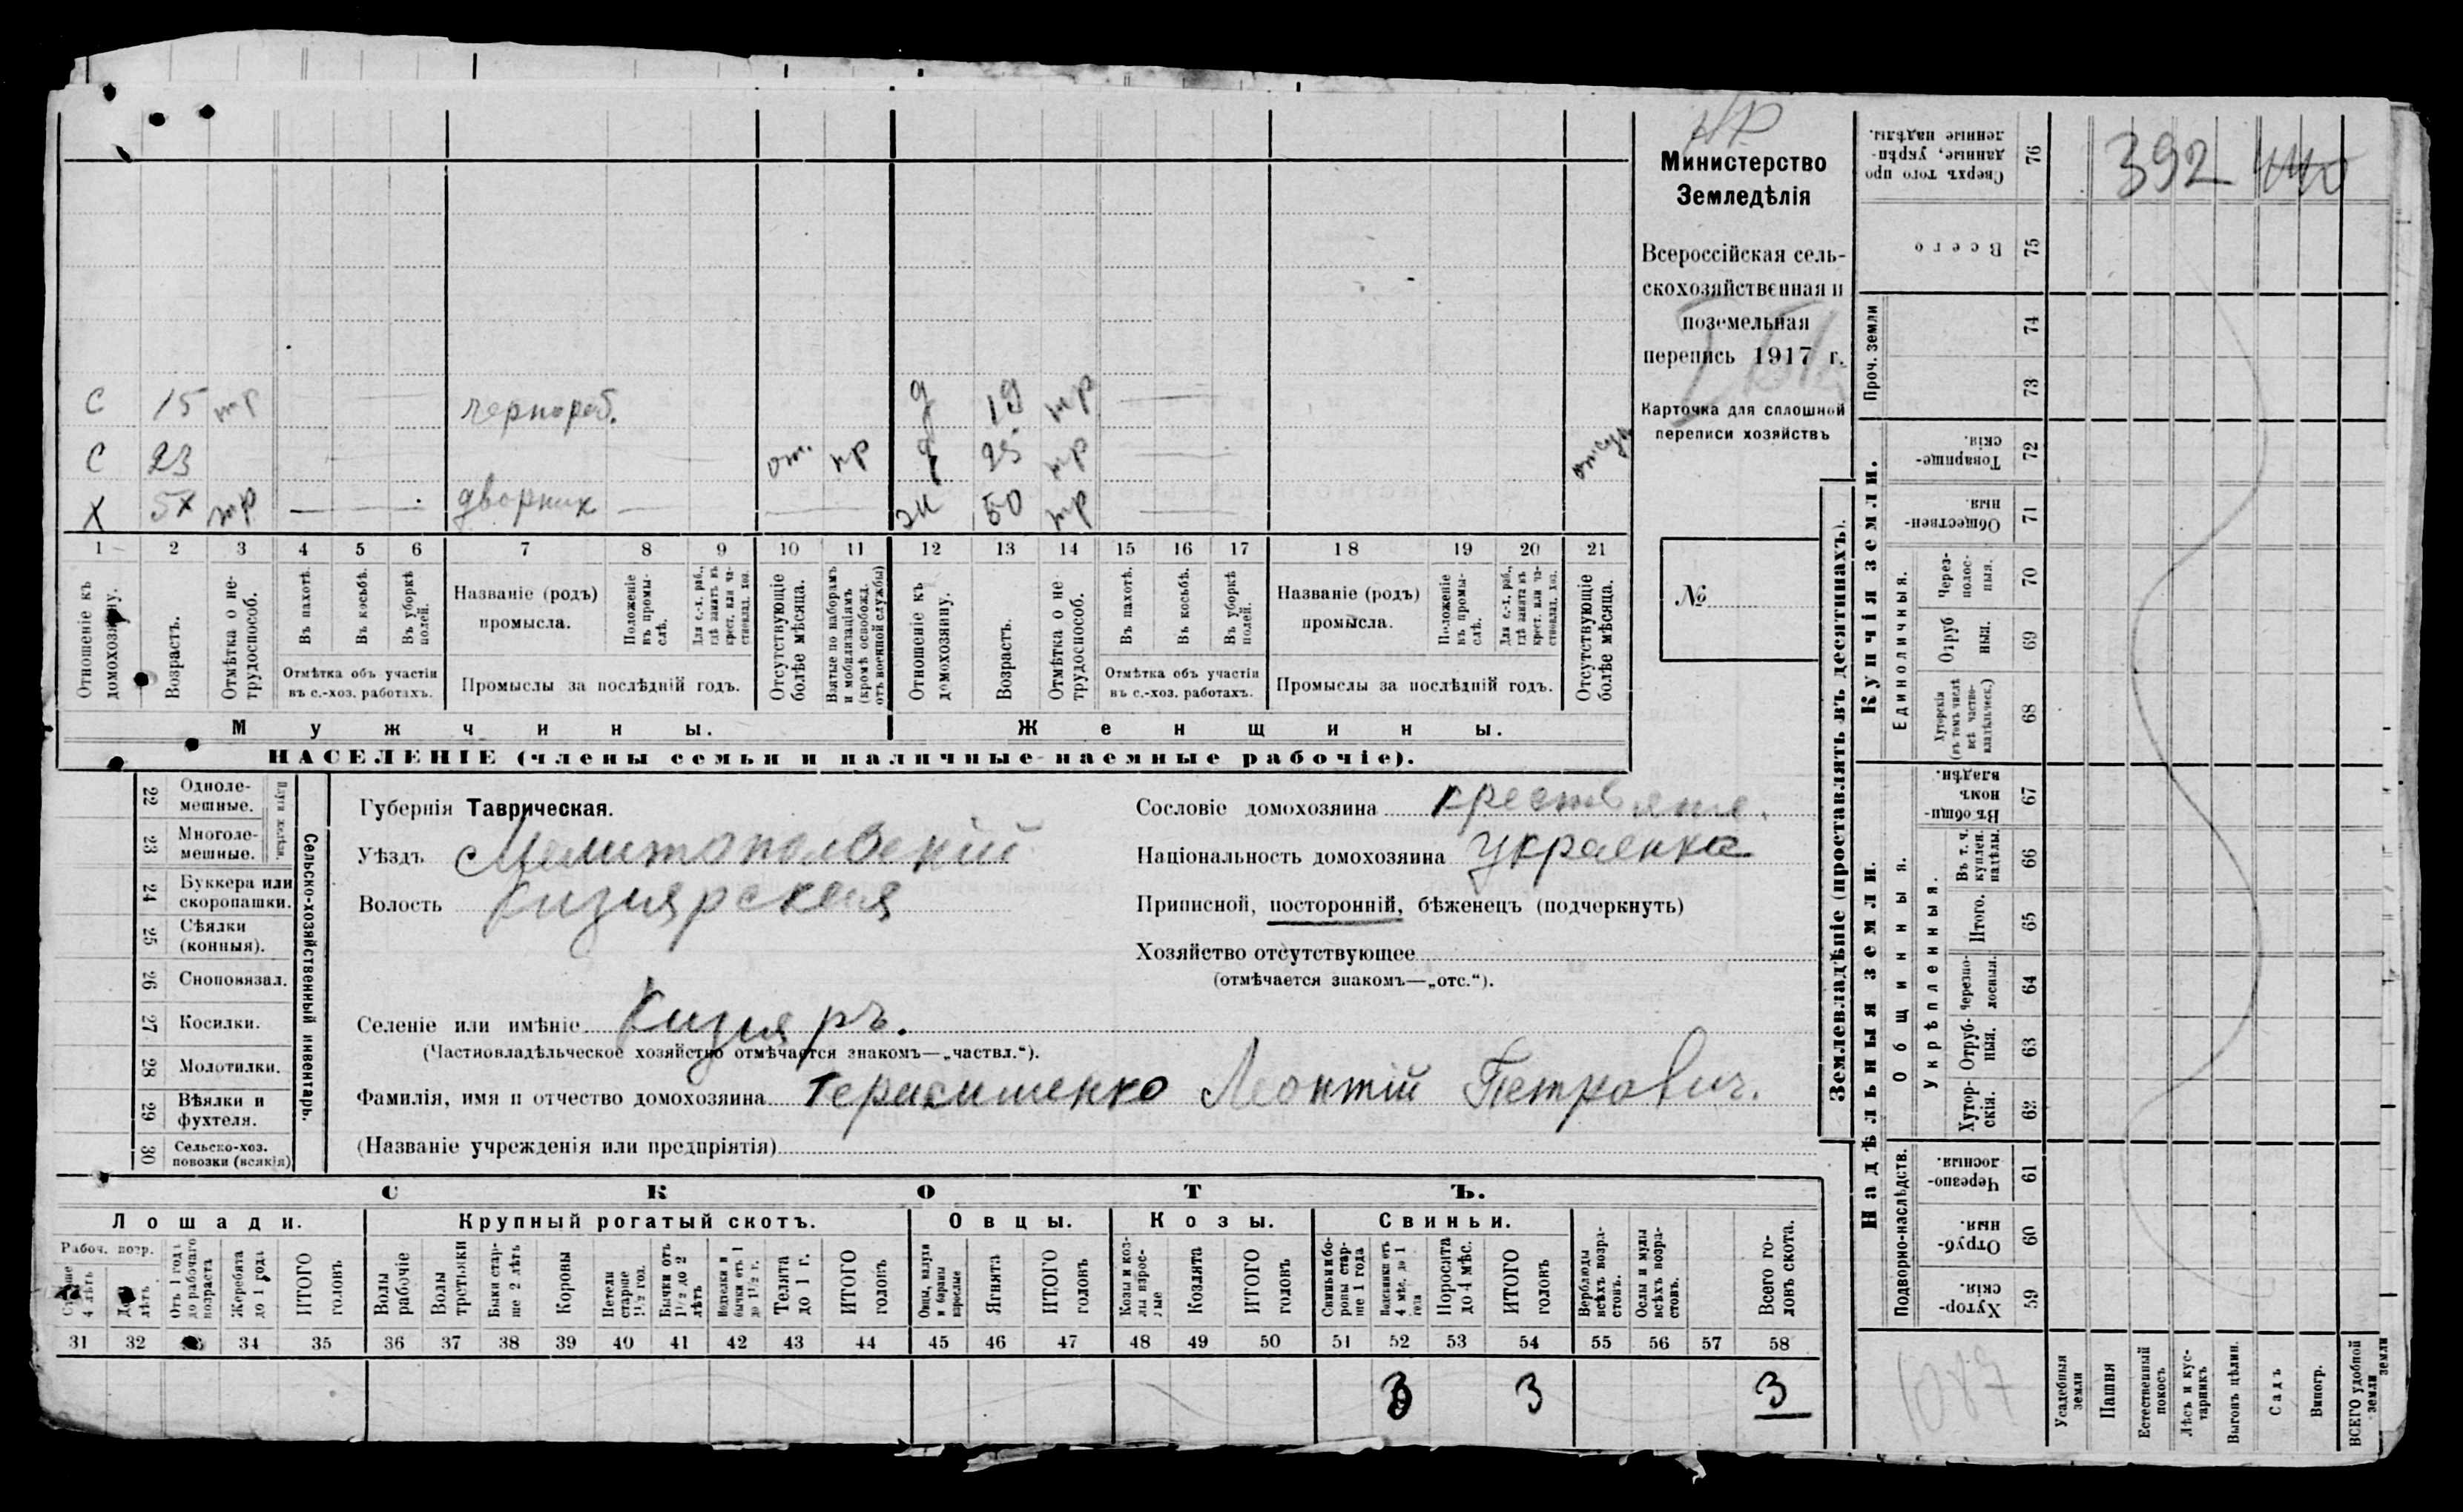 НР
Министерство
Земледѣлія
Всероссійская сель-
скохозяйственная и
поземельная
перепись 1917 г.
Карточка для сплошной
переписи хозяйствъ
№
С 15 тр чернораб. д 19 тр
С 23 от. нр д 25 тр отсут
Х 5Х тр — — — дворник — — ж 50 тр —
1 2 3 4 5 6 7 8 9 10 11 12 13 14 15 16 17 18 19 20 21
Отношеніе къ домохозяину.
Возрастъ.
Отмѣтка о не-трудоспособ.
Въ пахотѣ.
Въ косьбѣ.
Въ уборкѣ полей.
Отмѣтка объ участіи
въ с.-хоз. работахъ.
Названіе (родъ)
промысла.
Положеніе въ промы-слѣ.
Для с.-х. раб., гдѣ занятъ въ крест. или ча-стновлад. хоз.
Промыслы за послѣдній годъ.
Отсутствующіе болѣе мѣсяца.
Взятые по наборамъ и мобилизаціямъ (кромѣ освобожд. отъ военной службы)
Отношеніе къ домохозяину.
Возрастъ.
Отмѣтка о не-трудоспособ.
Въ пахотѣ.
Въ косьбѣ.
Въ уборкѣ полей.
Отмѣтка объ участіи
въ с.-хоз. работахъ.
Названіе (родъ)
промысла.
Положеніе въ промы-слѣ.
Для с.-х. раб., гдѣ занята въ крест. или ча-стновлад. хоз.
Промыслы за послѣдній годъ.
Отсутствующіе болѣе мѣсяца.
Мужчины. Женщины.
НАСЕЛЕНІЕ (члены семьи и наличные наемные рабочіе).
Сельско-хозяйственный инвентарь.
22 Одноле-мешные.
23 Многоле-мешные.
24 Буккера или скоропашки.
25 Сѣялки (конныя).
26 Сноповязал.
27 Косилки.
28 Молотилки.
29 Вѣялки и фухтеля.
30 Сельско-хоз. повозки (всякія)
Губернія Таврическая.
Уѣздъ Мелитопольскій
Волость Кизиярская
Селеніе или имѣніе Кизияръ.
(Частновладѣльческое хозяйство отмѣчается знакомъ—„частвл.“).
Фамилія, имя и отчество домохозяина Герасименко Леонтій Петрович.
(Названіе учрежденія или предпріятія)
Сословіе домохозяина крестьяне.
Національность домохозяина украенка
Приписной, посторонній, бѣженецъ (подчеркнуть)
Хозяйство отсутствующее
(отмѣчается знакомъ—„отс.“).
СКОТЪ.
Лошади. Крупный рогатый скотъ. Овцы. Козы. Свиньи.
Рабоч. возр.
Старше 4 лѣтъ
До 4 лѣтъ
Отъ 1 года до рабочаго возраста
Жеребята до 1 года
ИТОГО головъ
Волы рабочіе
Волы третьяки
Быки стар-ше 2 лѣтъ
Коровы
Нетели старше 1½ год.
Бычки отъ 1½ до 2 лѣтъ
Подтелки и бычки отъ 1 до 1½ г.
Телята до 1 г.
ИТОГО головъ
Овцы, валухи и бараны взрослые
Ягнята
ИТОГО головъ
Козы и коз-лы взрос-лые
Козлята
ИТОГО головъ
Свиньи и бо-ровы стар-ше 1 года
Подсвинки отъ 4 мѣс. до 1 года
Поросята до 4 мѣс.
ИТОГО головъ
Верблюды всѣхъ возра-стовъ.
Ослы и мулы всѣхъ возра-стовъ.
Всего го-ловъ скота.
31 32 33 34 35 36 37 38 39 40 41 42 43 44 45 46 47 48 49 50 51 52 53 54 55 56 57 58
3 3 3
Землевладѣніе (проставлять въ десятинахъ).
Купчія земли.
Надѣльныя земли.
Сверхъ того про-данные, укрѣп-ленные надѣлы. 76
Всего 75
Проч. земли
74
73
Товарище-скія. 72
Обществен-ныя. 71
Единоличныя.
Через-полос-ныя. 70
Отруб-ныя. 69
Хуторскія (въ томъ числѣ всѣ частно-владѣльческ.) 68
Общинныя.
Въ общи-номъ владѣн. 67
Укрѣпленныя.
Въ т. ч. куплен. надѣлы. 66
Итого. 65
Черезпо-лосныя. 64
Отруб-ныя. 63
Хутор-скія. 62
Подворно-наслѣдств.
Черезпо-лосныя. 61
Отруб-ныя. 60
Хутор-скія. 59
Усадебныя земли
Пашня
Естественный покосъ
Лѣсъ и кус-тарникъ
Выгонъ цѣлин.
Садъ
Виногр.
ВСЕГО удобной земли
392
1087